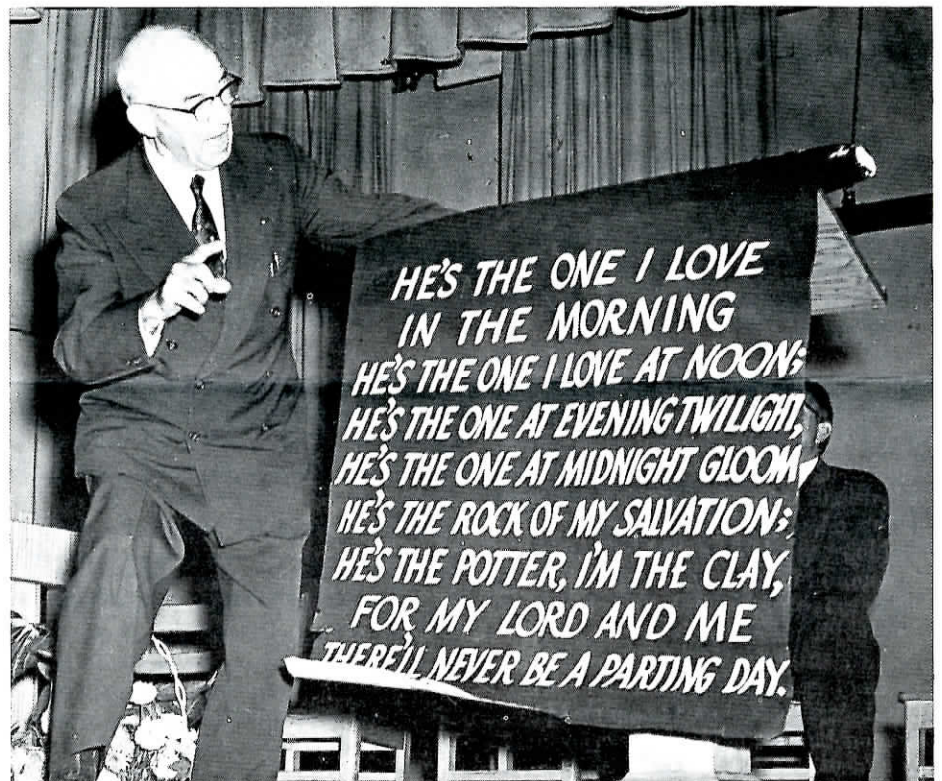 HE'S THE ONE I LOVE
IN THE MORNING
HE'S THE ONE I LOVE AT NOON;
HE'S THE ONE AT EVENING TWILIGHT,
HE'S THE ONE AT MIDNIGHT GLOOM
HE'S THE ROCK OF MY SALVATION;
HE'S THE POTTER, I'M THE CLAY,
FOR MY LORD AND ME
THERE'LL NEVER BE A PARTING DAY.